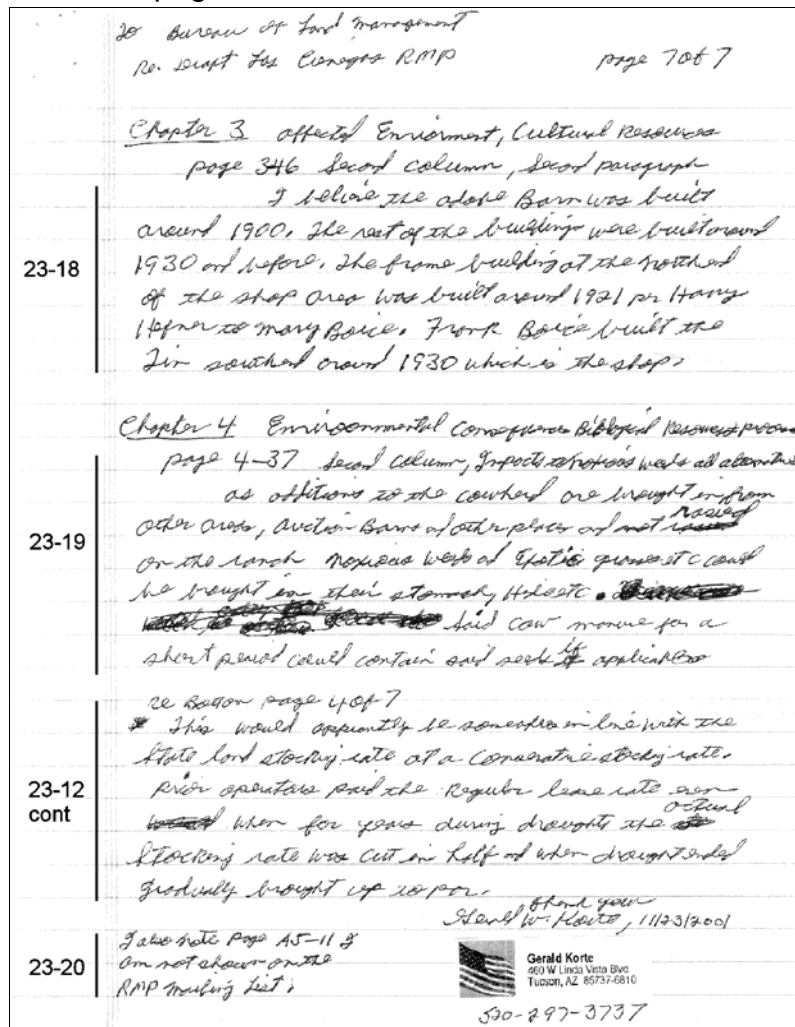 To Bureau of Land Management
Re. Draft Las Cienegas RMP page 7 of 7
Chapter 3 affected Enviorment, Cultural Resources
page 346 Second column, Second paragraph
I believe the adobe Barn was built
around 1900. The rest of the buildings were built around
23-18
1930 and before. The frame building at the north end
of the shop area was built around 1921 per Harry
Hefner to Mary Boice. Frank Boice built the
Tin south end around 1930 which is the shop.
Chapter 4 Environmental Consequences Biological Resources
page 4-37 Second Column, Impacts to noxious weeds all alternatives
as additions to the cowherd are brought in from
other areas, Auction Barns and other places and not rasied
23-19
on the ranch noxious weeds and Exotic grasses etc could
be brought in their stomachs, Hides etc.
Said cow manure for a
short period could contain said seeds if applicable
re Bottom page 4 of 7
* This would apparently be somewhere in line with the
State land stocking rate at a Conservative stocking rate.
23-12
cont
Prior operators paid the Regular lease rate even
when for years during droughts the actual
Stocking rate was cut in half and when drought ended
gradually brought up to par.
Thank you
Gerald W. Korte, 11/23/2001
23-20
I also note Page A5-11 I
am not shown on the
RMP mailing List.
Gerald Korte
460 W Linda Vista Blvd
Tucson, AZ 85737-6810
520-297-3737